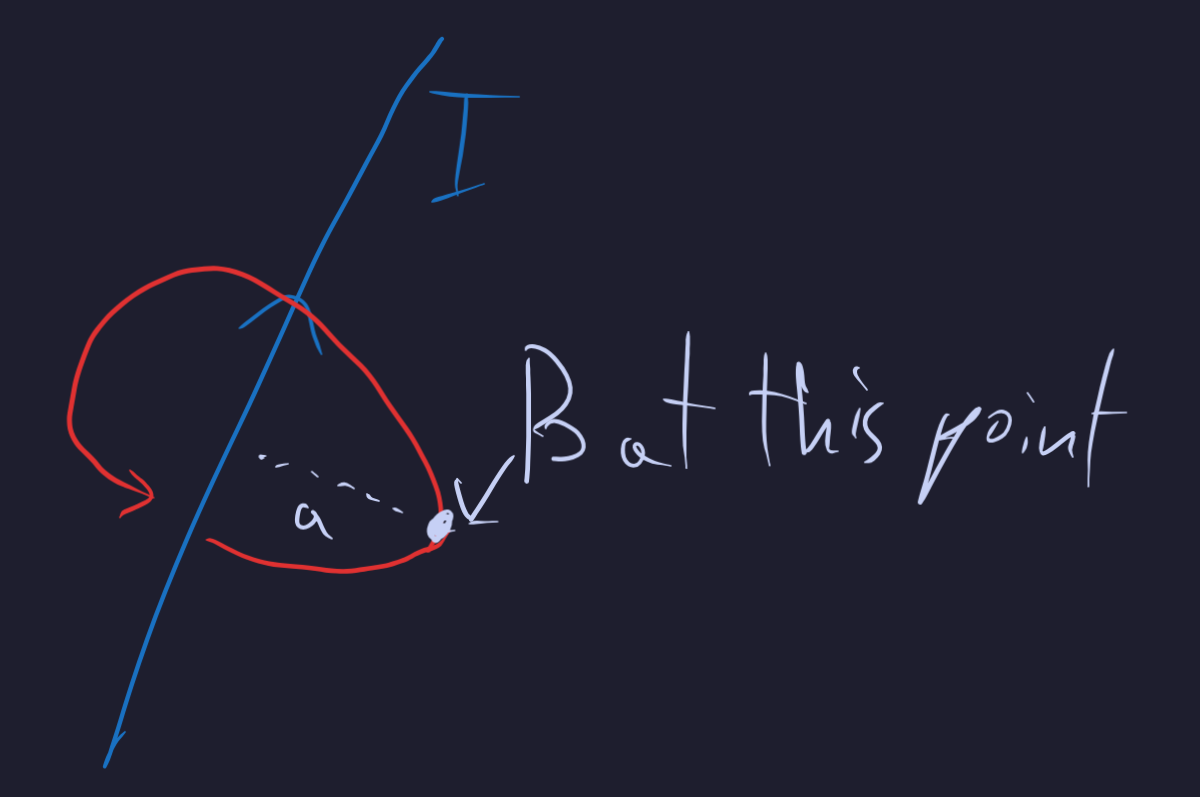 I
B at this point
a